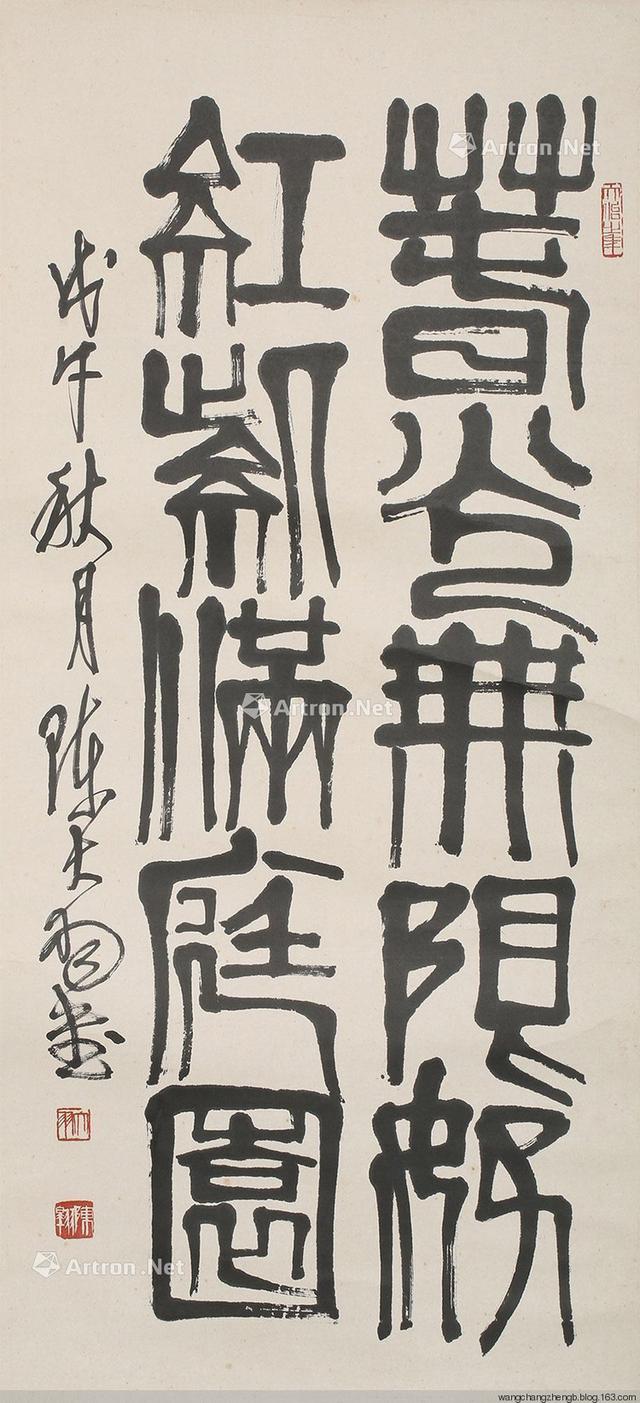 春光無限好
紅紫滿庭園
戊午秋月陳大羽書
大羽
Artron.Net
Artron.Net
Artron.Net
wangchangzhengb.blog.163.com